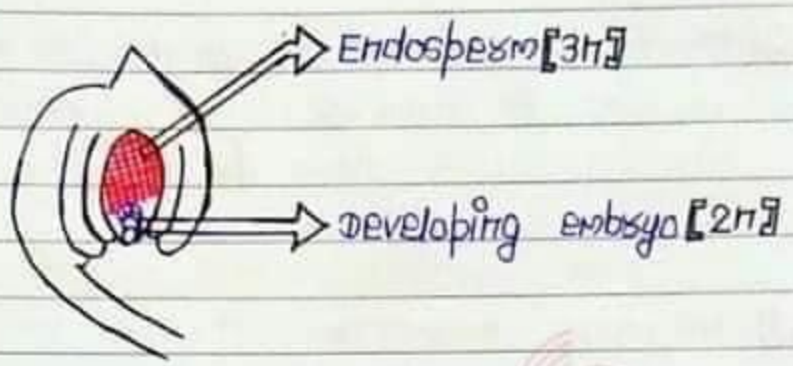 Endosperm [3n]
Developing embryo [2n]